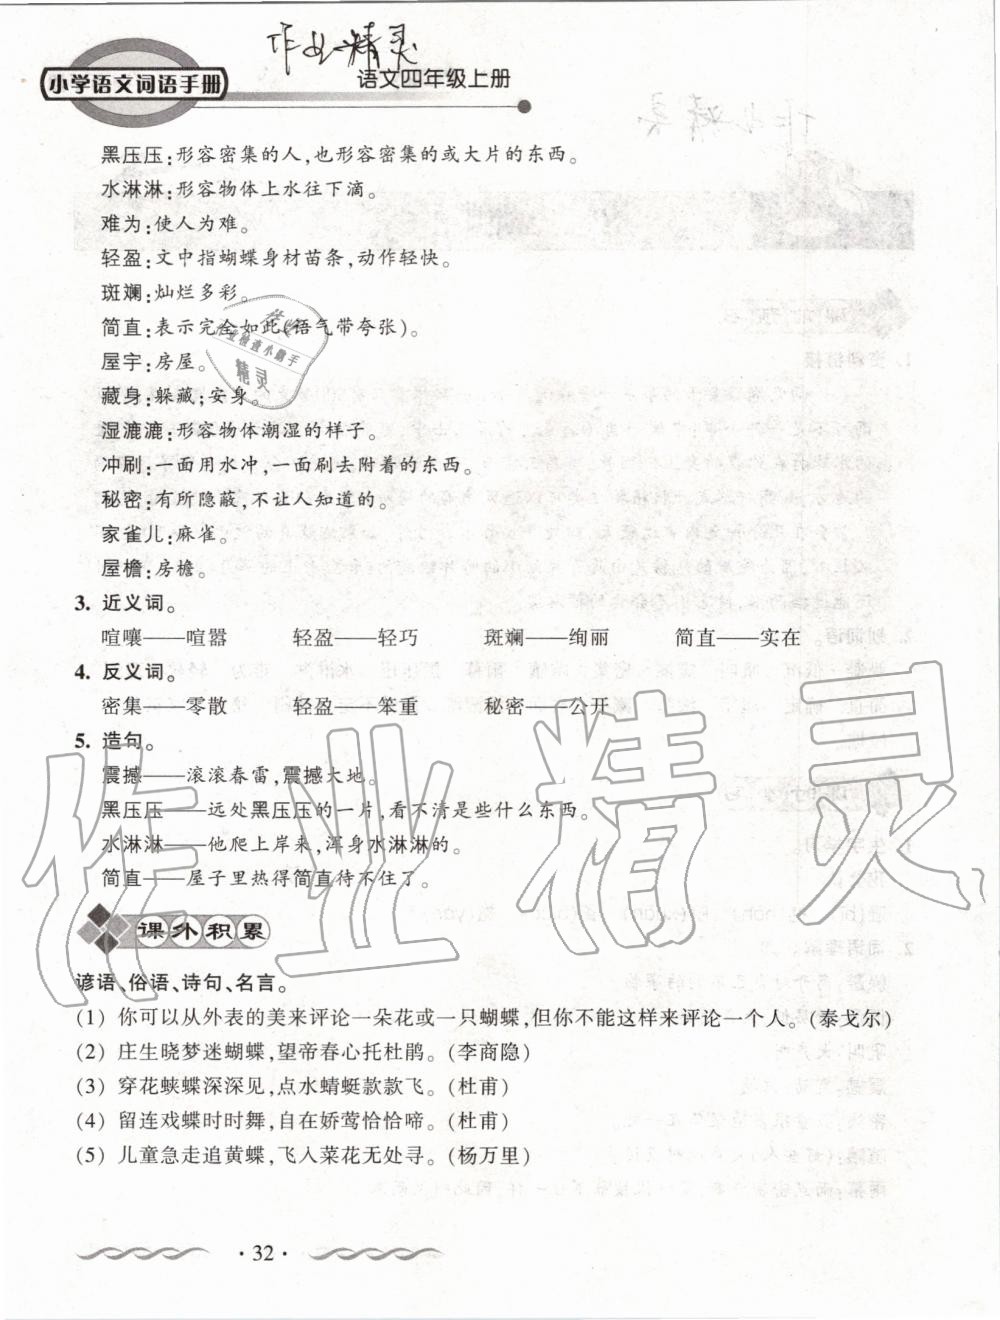 作业精灵
小学语文词语手册
语文四年级上册
黑压压:形容密集的人,也形容密集的或大片的东西。
水淋淋:形容物体上水往下滴。
难为:使人为难。
轻盈:文中指蝴蝶身材苗条,动作轻快。
斑斓:灿烂多彩。
简直:表示完全如此(语气带夸张)。
屋宇:房屋。
藏身:躲藏;安身。
湿漉漉:形容物体潮湿的样子。
冲刷:一面用水冲,一面刷去附着的东西。
秘密:有所隐蔽,不让人知道的。
家雀儿:麻雀。
屋檐:房檐。
3. 近义词。
喧嚷——喧嚣 轻盈——轻巧 斑斓——绚丽 简直——实在
4. 反义词。
密集——零散 轻盈——笨重 秘密——公开
5. 造句。
震撼——滚滚春雷,震撼大地。
黑压压——远处黑压压的一片,看不清是些什么东西。
水淋淋——他爬上岸来,浑身水淋淋的。
简直——屋子里热得简直待不住了。
课外积累
谚语、俗语、诗句、名言。
(1) 你可以从外表的美来评论一朵花或一只蝴蝶,但你不能这样来评论一个人。(泰戈尔)
(2) 庄生晓梦迷蝴蝶,望帝春心托杜鹃。(李商隐)
(3) 穿花蛱蝶深深见,点水蜻蜓款款飞。(杜甫)
(4) 留连戏蝶时时舞,自在娇莺恰恰啼。(杜甫)
(5) 儿童急走追黄蝶,飞入菜花无处寻。(杨万里)
·32·
作业精灵